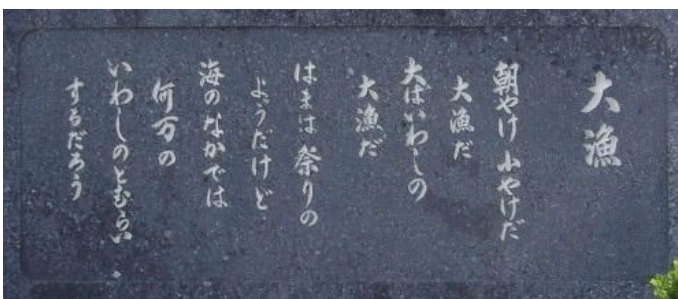 大漁
朝やけ小やけだ
大漁だ
大ばいわしの
大漁だ
はまは祭りの
ようだけど
海のなかでは
何万の
いわしのとむらい
するだろう